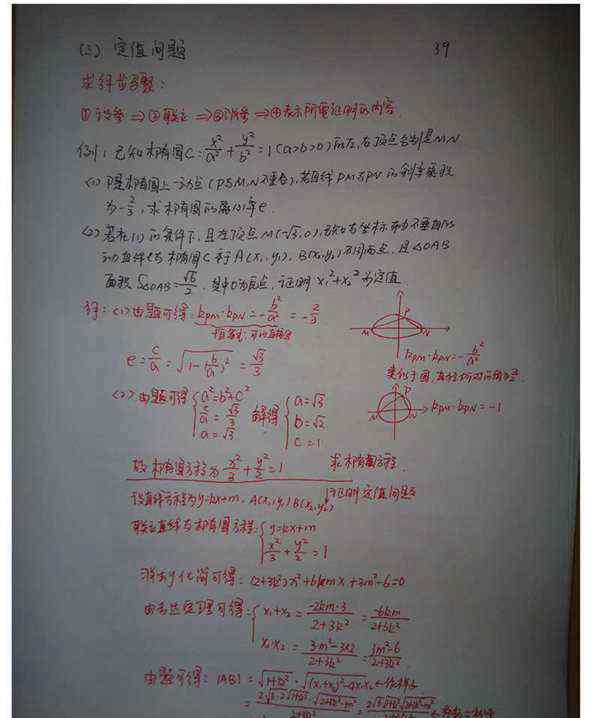 (三) 定值问题 39
求解步骤:
① 设参 ⇒ ② 联立 ⇒ ③ 消参 ⇒ ④ 表示所需证明的内容.
例1: 已知椭圆C: x²/a² + y²/b² = 1 (a>b>0) 的左,右顶点分别是M,N
(1) P是椭圆上一动点 (P与M,N不重合), 若直线PM与PN的斜率乘积
为-2/3, 求椭圆的离心率e.
(2) 若在(1)的条件下, 且左顶点M(-√3,0), 与坐标轴不垂直的
直线l与椭圆C交于A(x₁,y₁), B(x₂,y₂)不同两点, 且△OAB
面积 S△OAB = √6/2, 其中O为原点, 证明 x₁²+x₂² 为定值
解: (1) 由题可得: kPM·kPN = -b²/a² = -2/3
e = c/a = √(1-(b/a)²) = √3/3
kPM·kPN = -b²/a²
类似于圆,
kPM·kPN = -1
(2) 由题可得 { a²=b²+c² c/a = √3/3 a=√3 解得 { a=√3 b=√2 c=1
故椭圆方程为 x²/3 + y²/2 = 1 求椭圆方程.
设直线方程为y=kx+m, A(x₁,y₁) B(x₂,y₂) 定值问题
联立直线与椭圆方程: { y=kx+m x²/3 + y²/2 = 1
消去y化简可得: (2+3k²)x²+6kmx+3m²-6=0
由韦达定理可得: { x₁+x₂ = -2km·3/2+3k² = -6km/2+3k²
x₁·x₂ = 3·m²-3×2/2+3k² = 3m²-6/2+3k².
由题可得: |AB| = √1+k² · √(x₁+x₂)²-4x₁x₂